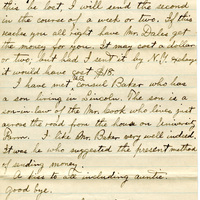 this be lost, I will send the second
in the course of a week or two. If this
reaches you all right have Mr. Dales get
the money for you. It may cost a dollar
or two, but had I sent it by N.Y. exchange
it would have cost $18.
I have met consul Baker who has
a son living in Lincoln. The son is a
son-in-law of the Mr. Cook who lives just
across the road from the house on University
Farm. I like Mr. Baker very well indeed.
It was he who suggested the present method
of sending money.
A kiss to all including auntie.
Good bye.